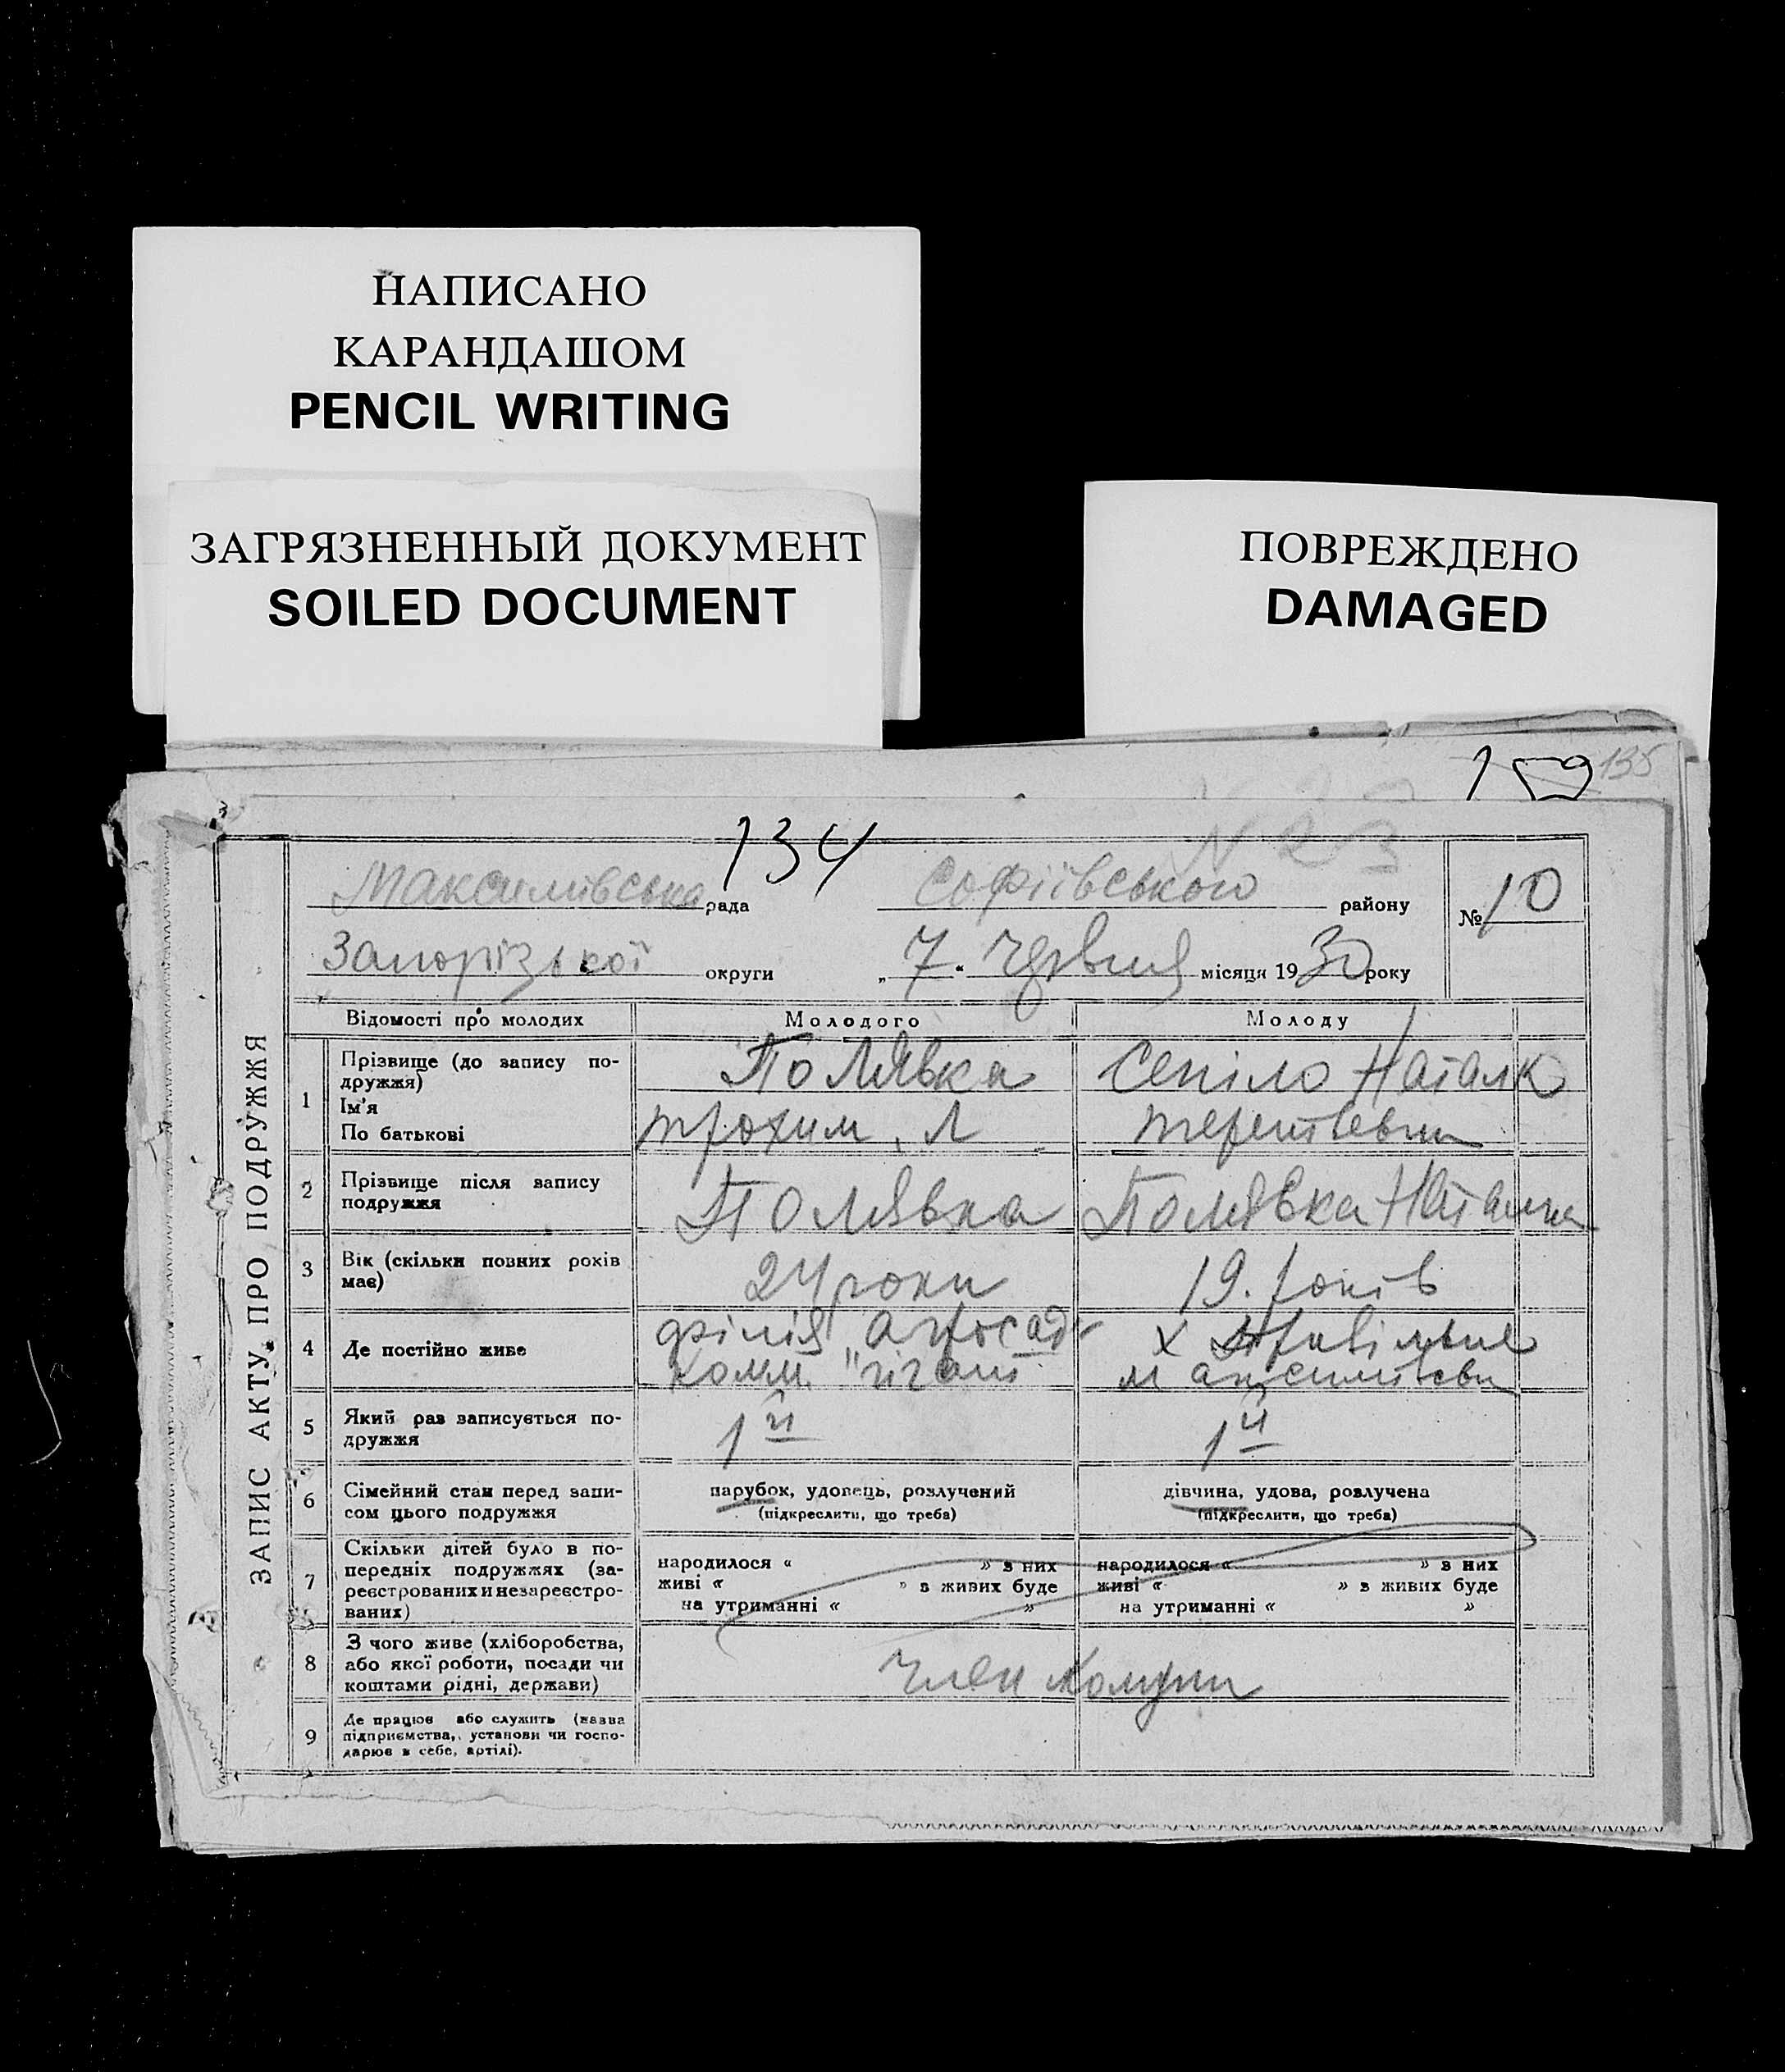 НАПИСАНО
КАРАНДАШОМ
PENCIL WRITING
ЗАГРЯЗНЕННЫЙ ДОКУМЕНТ
SOILED DOCUMENT
ПОВРЕЖДЕНО
DAMAGED
135
134
N 23
ЗАПИС АКТУ ПРО ПОДРУЖЖЯ
Максимівська рада Софіївського району № 10
Запорізької округи „7“ червня місяця 1930 року
Відомості про молодих Молодого Молоду
1 Прізвище (до запису по-
дружжя)
Ім'я
По батькові
Полявка
трохим. Л
Сепіло Наталк
терентьевни
2 Прізвище після запису
подружжя
Полявка
Полявка Наталка
3 Вік (скільки повних років
має)
24 роки
19. років
4 Де постійно живе
філія
комм. "гігант
х Привільне
5 Який раз записується по-
дружжя
1й
1й
6 Сімейний стан перед запи-
сом цього подружжя
парубок, удовець, розлучений
(підкреслити, що треба)
дівчина, удова, розлучена
(підкреслити, що треба)
7 Скільки дітей було в по-
передніх подружжях (за-
реєстрованих и незареєстро-
ваних)
народилося « » з них
живі « » з живих буде
на утриманні « »
народилося « » з них
живі « » з живих буде
на утриманні « »
8 З чого живе (хліборобства,
або якої роботи, посади чи
коштами рідні, держави)
член комуни
9 Де працює або служить (назва
підприємства, установи чи госпо-
дарює в себе, артілі).